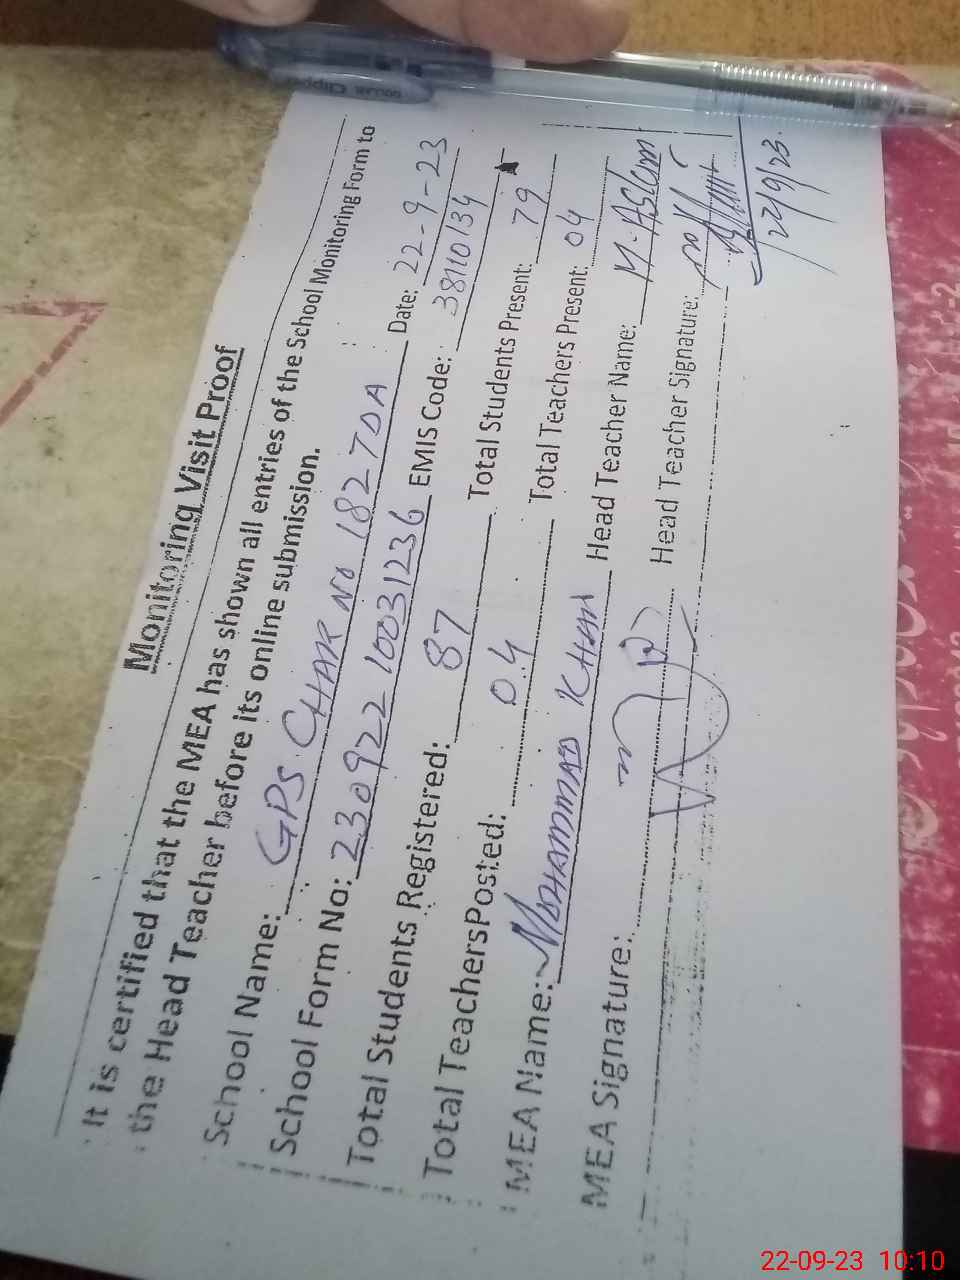 Monitoring Visit Proof
It is certified that the MEA has shown all entries of the School Monitoring Form to
the Head Teacher before its online submission.
School Name: GPS CHAK No 182 TDA Date: 22-9-23
School Form No: 230922 10031236 EMIS Code: 38110134
Total Students Registered: 87 Total Students Present: 79
Total TeachersPosted: 04 Total Teachers Present: 04
MEA Name: MOHAMMAD KHAN Head Teacher Name: M. Aslam
MEA Signature: Head Teacher Signature:
22/9/23.
DOLLAR Clipper
22-09-23 10:10